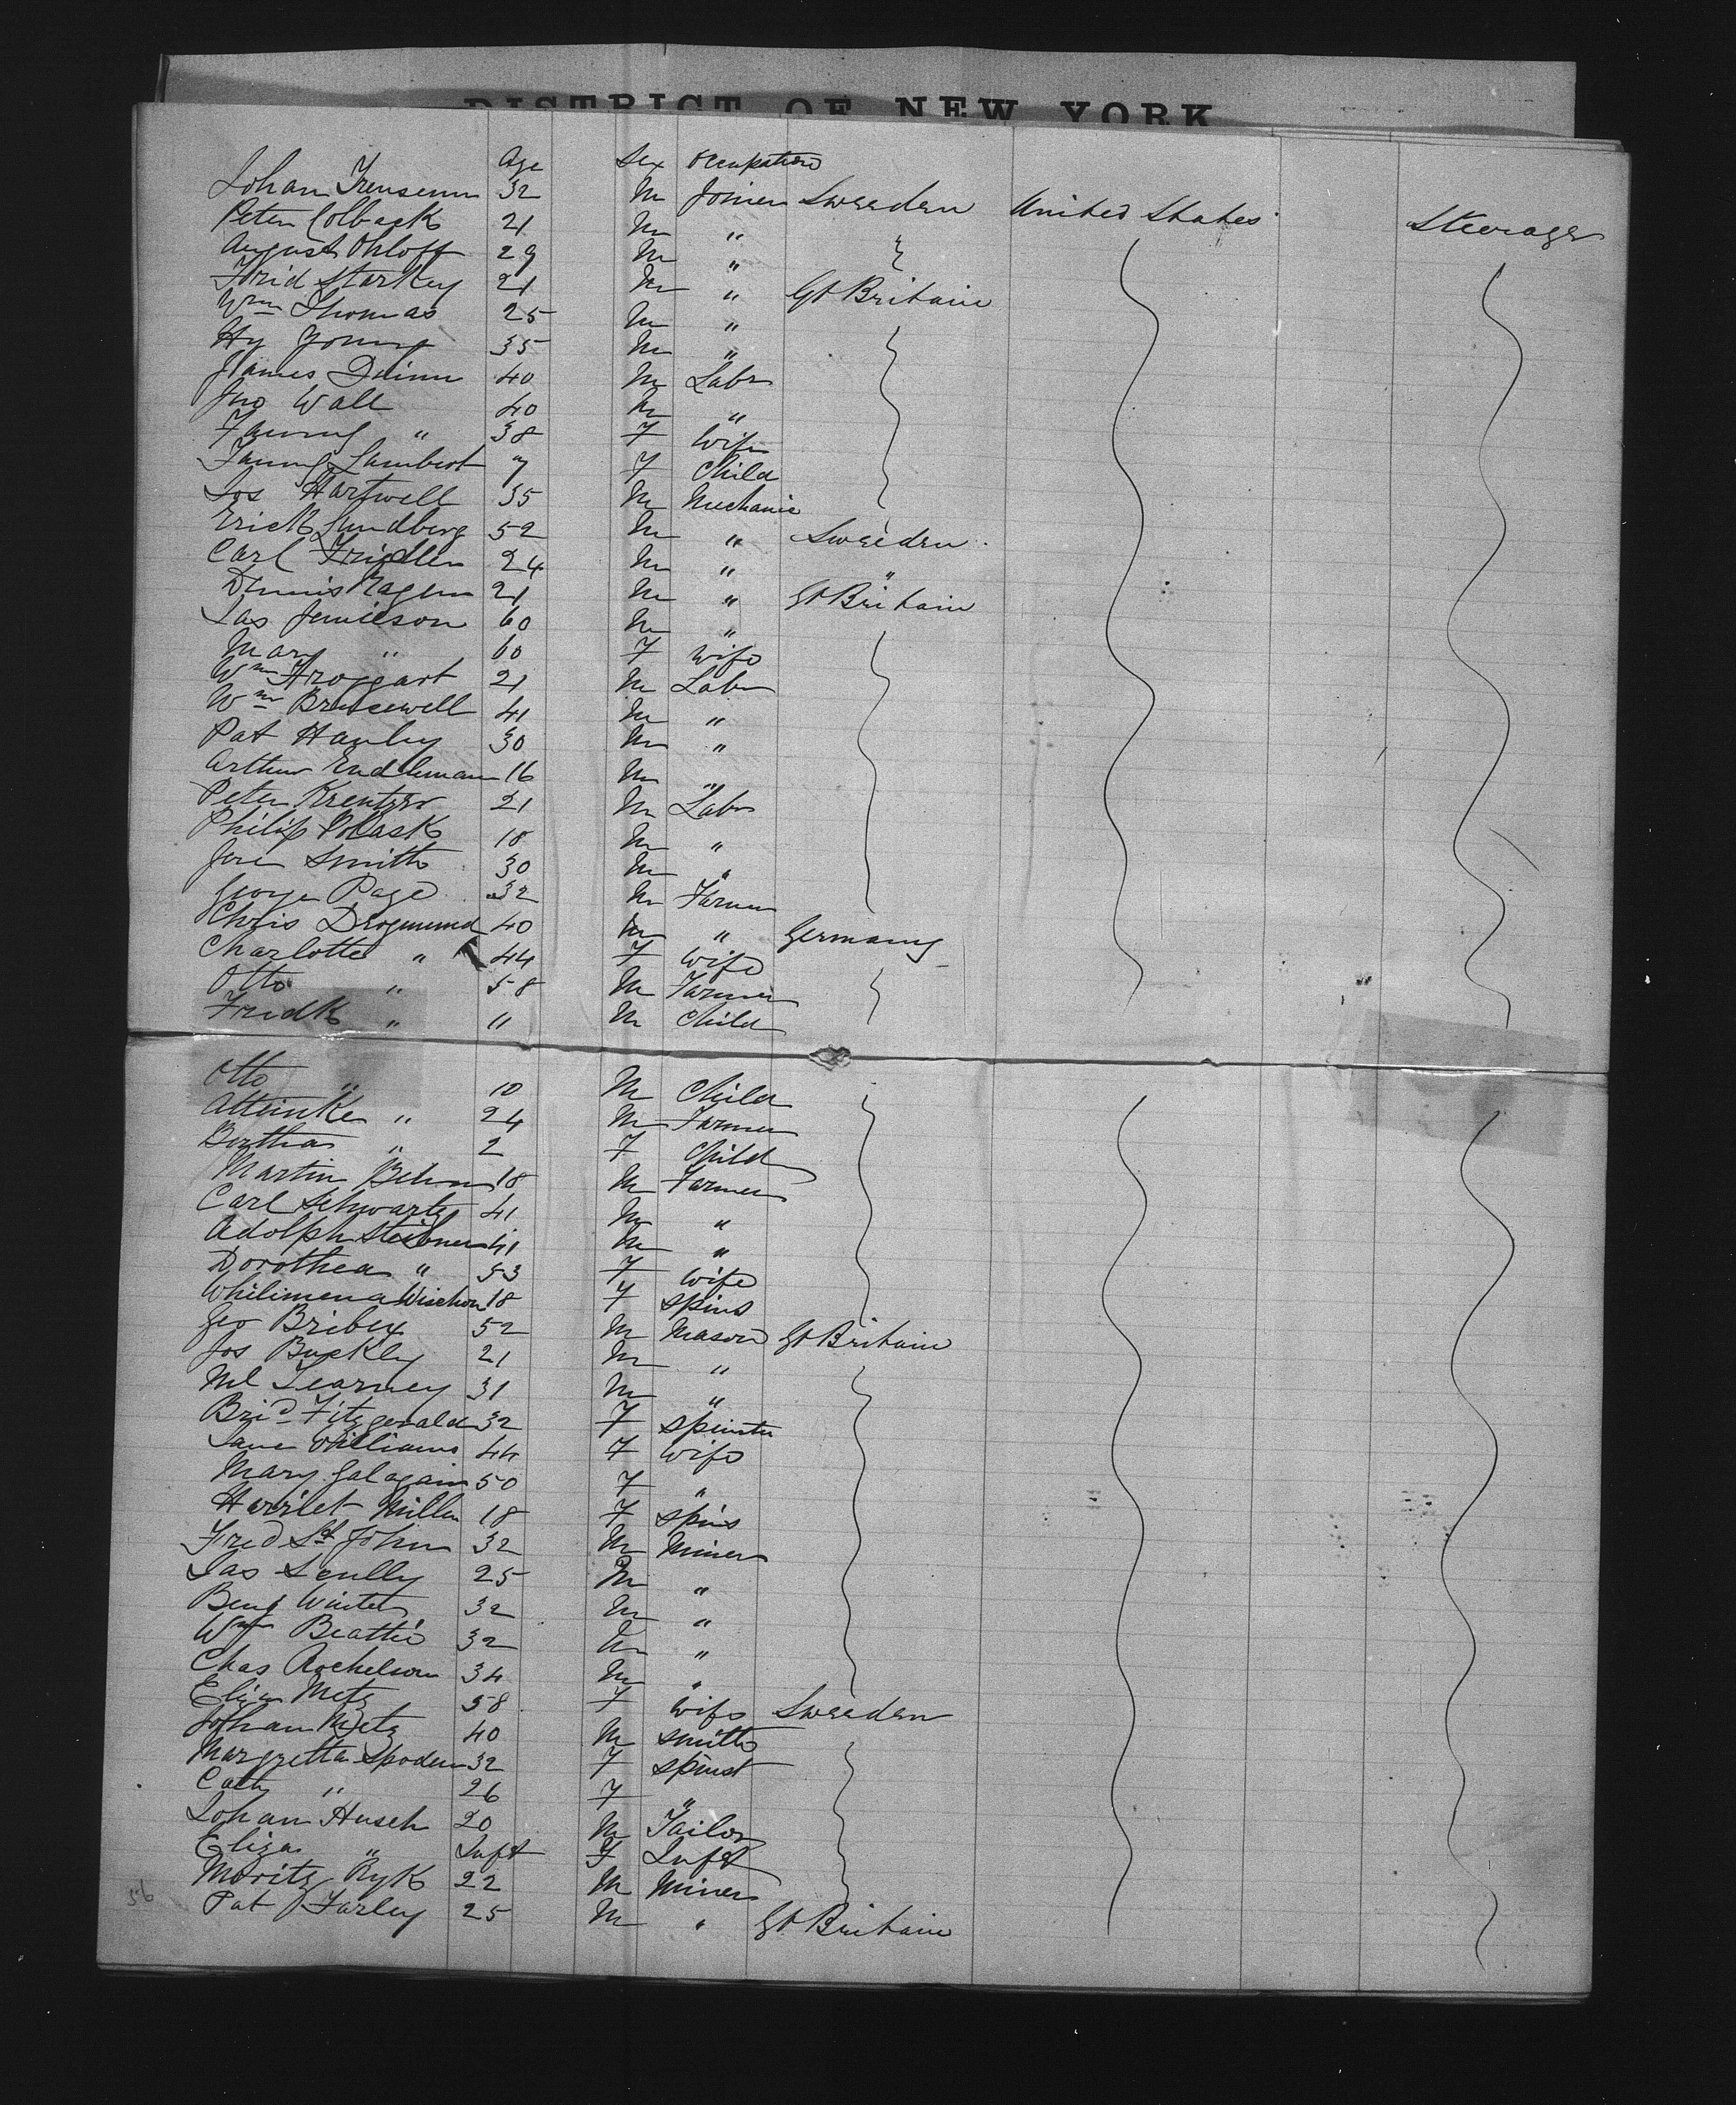 DISTRICT OF NEW YORK
Age Sex Occupation
Johan 32 M Joiner Sweeden United States Steerage
Peter Colback 21 M "
August Ohloff 29 M "
Frid Starkey 21 M " Gt Britain
Wm Thomas 25 M "
Hy Young 35 M "
James Quinn 40 M Labr
Jno Wall 40 M "
Fanny " 38 F Wife
Fanny Lambert 7 F Child
Jos Hartwell 35 M Mechanic
Erick Lundberg 52 M " Sweeden
Carl 24 M " "
Dennis 21 M " Gt Britain
Jas Jemieson 60 M "
Mary " 60 F Wife
Wm Froggart 21 M Labr
Wm 41 M "
Pat Hanley 30 M "
Arthur Endleman 16 M "
Peter Krentzer 21 M Labr
Philip Pollask 18 M "
Jere Smith 30 M "
George Page 32 M Farmer
Chris Drogmund 40 M " Germany
Charlotte " 44 F Wife
Otto " 58 M Farmer
Fredk " 11 M Child
Otto " 10 M Child
" 24 M Farmer
Bertha " 2 F Child
Martin Behm 18 M Farmer
Carl Schwartz 41 M "
Adolph 41 M "
Dorothea " 53 F Wife
Whilimena 18 F Spins
Geo Bribey 52 M Mason Gt Britain
Jos Buckley 21 M "
Ml Tearney 31 M "
Brid Fitzgerald 32 F Spinster
Jane Williams 44 F Wife
Mary Galagain 50 F "
Harriet Miller 18 F Spins
Fred St John 32 M Miner
Jas Scully 25 M "
Benj Winter 32 M "
Wm Beattie 32 M "
Chas 34 M "
Eliza Metz 58 F Wife Sweeden
Johan Metz 40 M Smith
Margretta Spoden 32 F Spinst
Cath " 26 F "
Johan Husch 20 M Tailor
Eliza " Inft F Inft
Moritz Ryk 22 M Miner
Pat Farley 25 M " Gt Britain
56